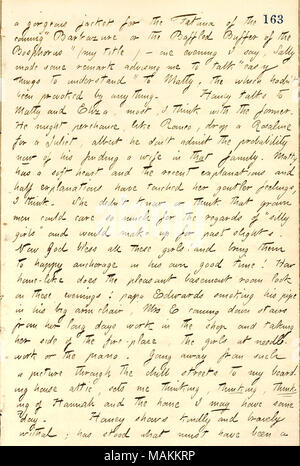 163
a gorgeous jacket for the Fatima of the
coming "Barbazure or the Baffled Buffer of the
Bosphorus" (my title) — one evening I say, Sally
made some remark advising me to talk "easy
things to understand" to Matty, she who hadn't
been provoked by anything. Haney talks to
Matty and Eliza, most I think with the former.
He might perchance, like Romeo, drop a Rosaline
for a Juliet, albeit he don't admit the probability
now of his finding a wife in that family. Matty
has a soft heart and the recent explanations and
half explanations have touched her gentler feelings,
I think. She didn't know or think that grown
men could care so much for the regards of "silly
girls" and would make up for past slights.
Now God bless all these girls and bring them
to happy anchorage in his own good time! How
home-like does the pleasant basement room look
on these evenings; papa Edwards smoking his pipe
in his big arm chair. Mrs E coming down stairs
from her long days work in the shop and taking
her side of the fire-place. the girls at needle
work or the piano. Going away from such
a picture through the chill streets to my board
ing house attic sets me thinking, thinking, think
ing of Hannah and the home I may have some
day. Haney shows kindly and bravely
withal; has stood what must have been a
alamy
Image ID: MAKKRP
www.alamy.com